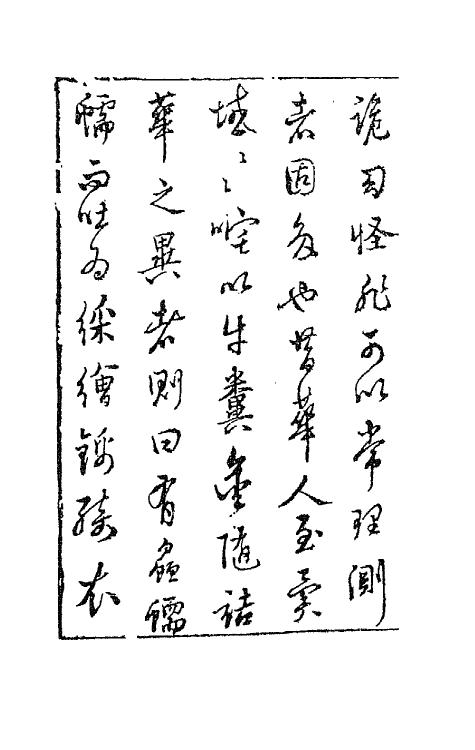 詭幻怪非可以常理測
者固多也昔華人至異
域〻咤以牛糞金隨詰
華之異者則曰有蟲蠕
蠕而吐為綵繒錦綺衣